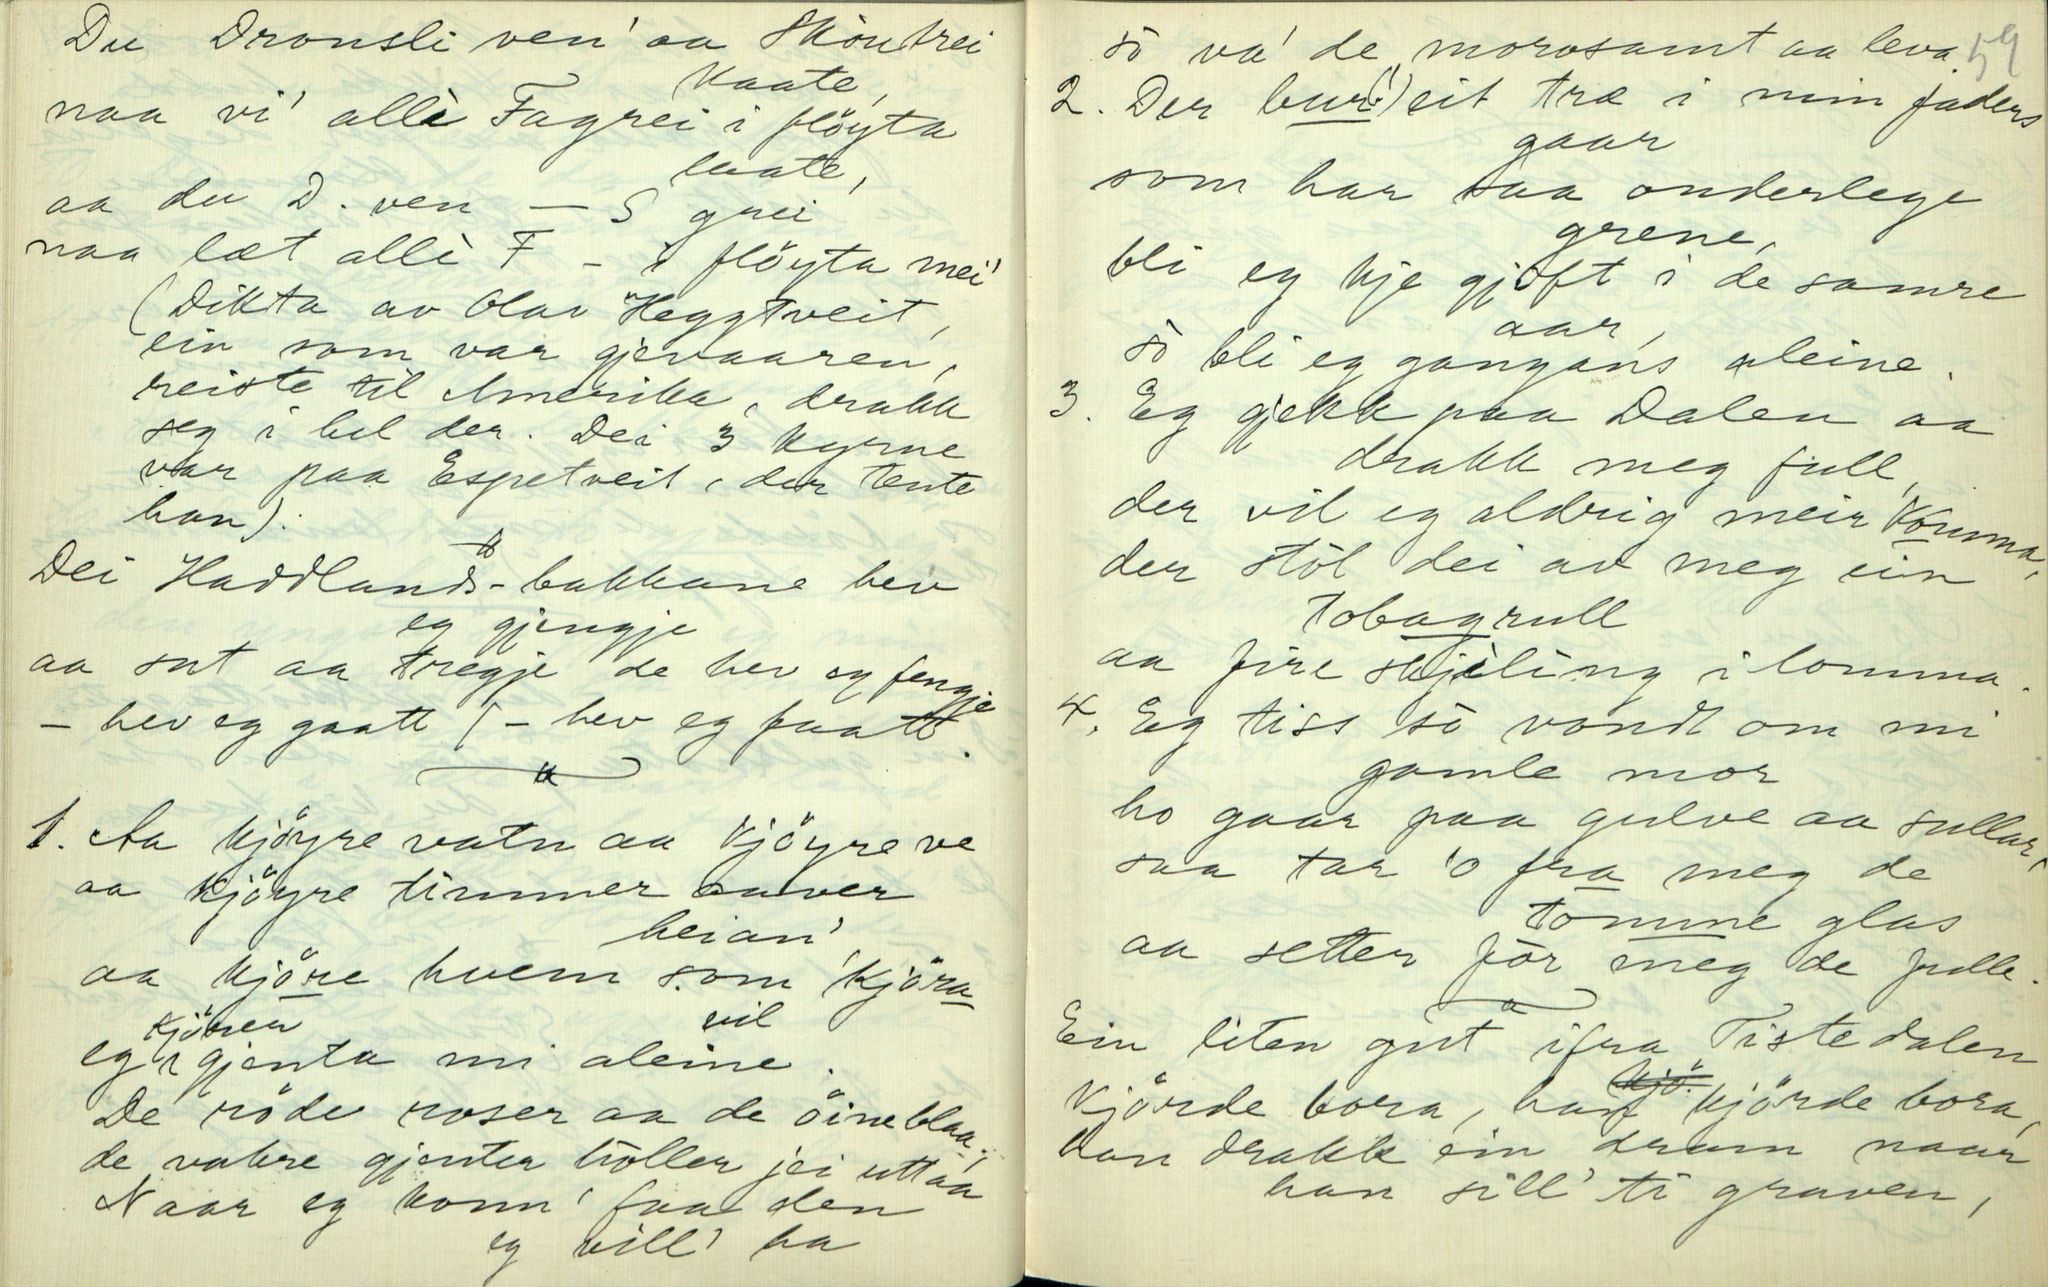 Du Dronsli ven' aa Skönbrei
kaate,
naa vi' allè Fagrei i flöyta
laate,
aa du D. ven — S grei
naa læt allè F – i flöyta mei'
(Dikta av Olav Heggtveit,
ein som var gjevaaren,
reiste til Amerika, drakk
seg i hel der. Dei 3 kyrne
var paa Espetveit, der tente
han).
Dei Haddlands-bakkane hev
eg gjengje
aa sut aa tregje de hev eg fengje
– hev eg gaatt / – hev eg faatt.
1. Aa kjöyre vatn aa kjöyre ve
aa kjöyre timmer aaver
heian'
aa kjöre hvem som kjöra
vil
kjörer
eg gjenta mi aleine.
De röde roser aa de öine blaa,
de vakre gjenter höller jei uttaa
Naar eg konn' faa den
eg vill' ha
59
sò va' de morosamt aa leva.
2. Der bur(!) eit træ i min faders
gaar
som har saa onderlege
grene,
bli eg kje gjift i de samre
aar,
sò bli eg gangans aleine.
3. Eg gjekk paa Dalen aa
drakk meg full,
der vil eg aldrig meir komma,
der stòl dei av meg ein
tobagrull
aa fire skjiling i lomma.
4. Eg tiss sò vondt om mi
gamle mor
ho gaar paa gulve aa sullar,
saa tar 'o fra meg de
tomme glas
aa setter för meg de fulle.
Ein liten gut ifra Tistedalen
kjörde bora, han kjörde bora,
han drakk ein dram naar
han sill' ti graven,